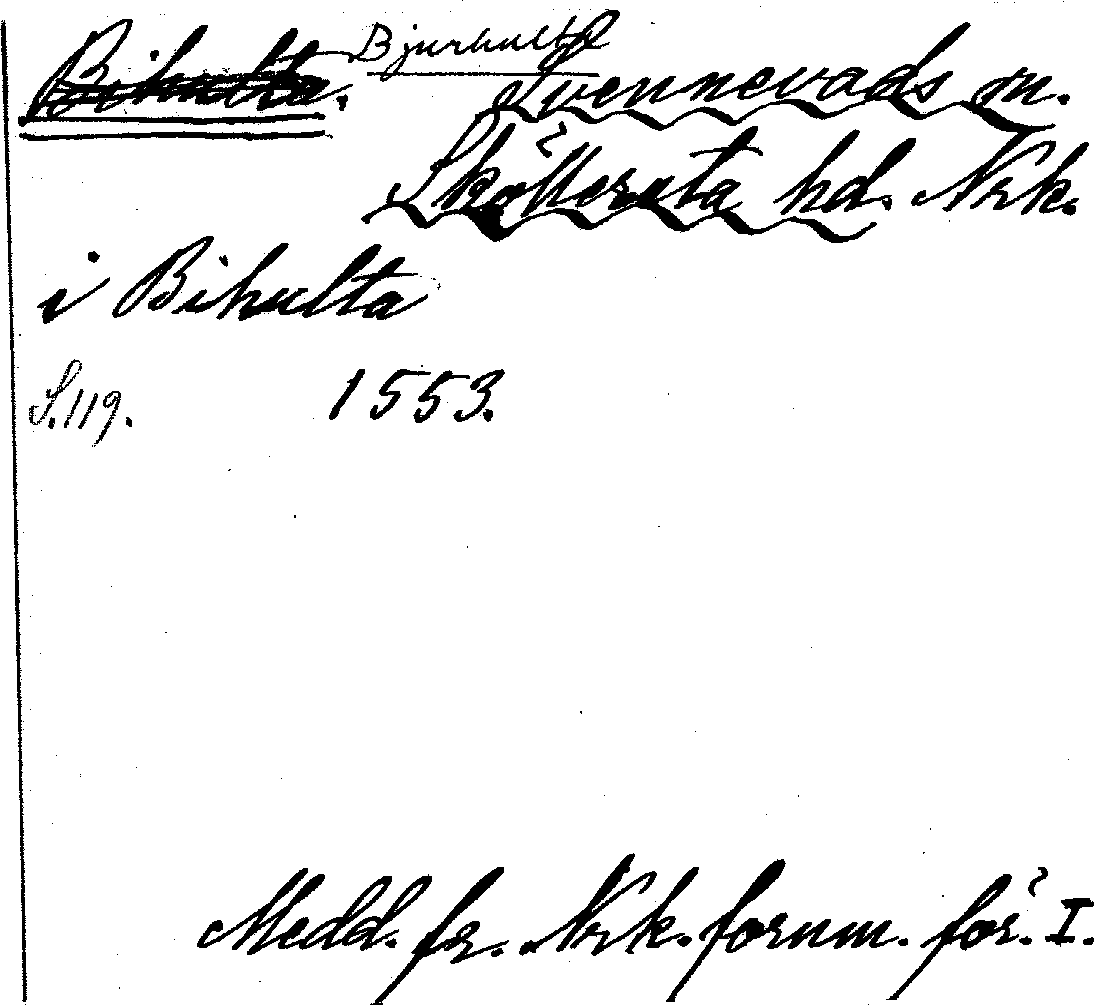 Bihulta. Bjurhult Svennevads sn.
Sköllersta hd. Nrk.
i Bihulta
S. 119. 1553.
Medd. fr. Nrk. fornm. för. I.